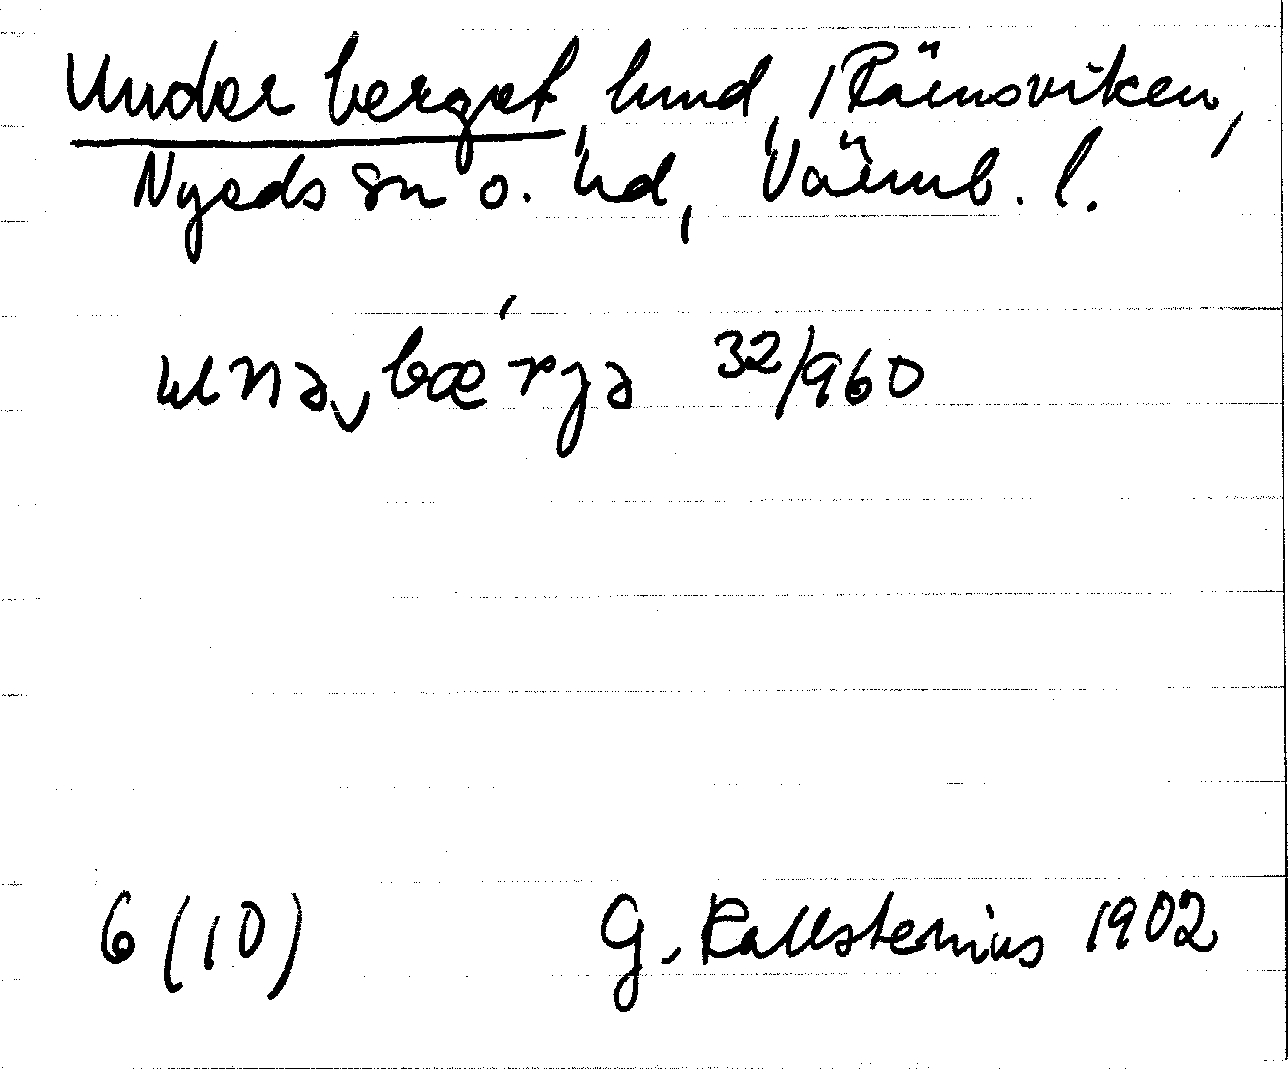 Under berget, lund, Rämsviken,
Nyeds sn o. hd, Värmb. l.
unə‿bæ´rjə 32/960
6 (10) G. Kallstenius 1902